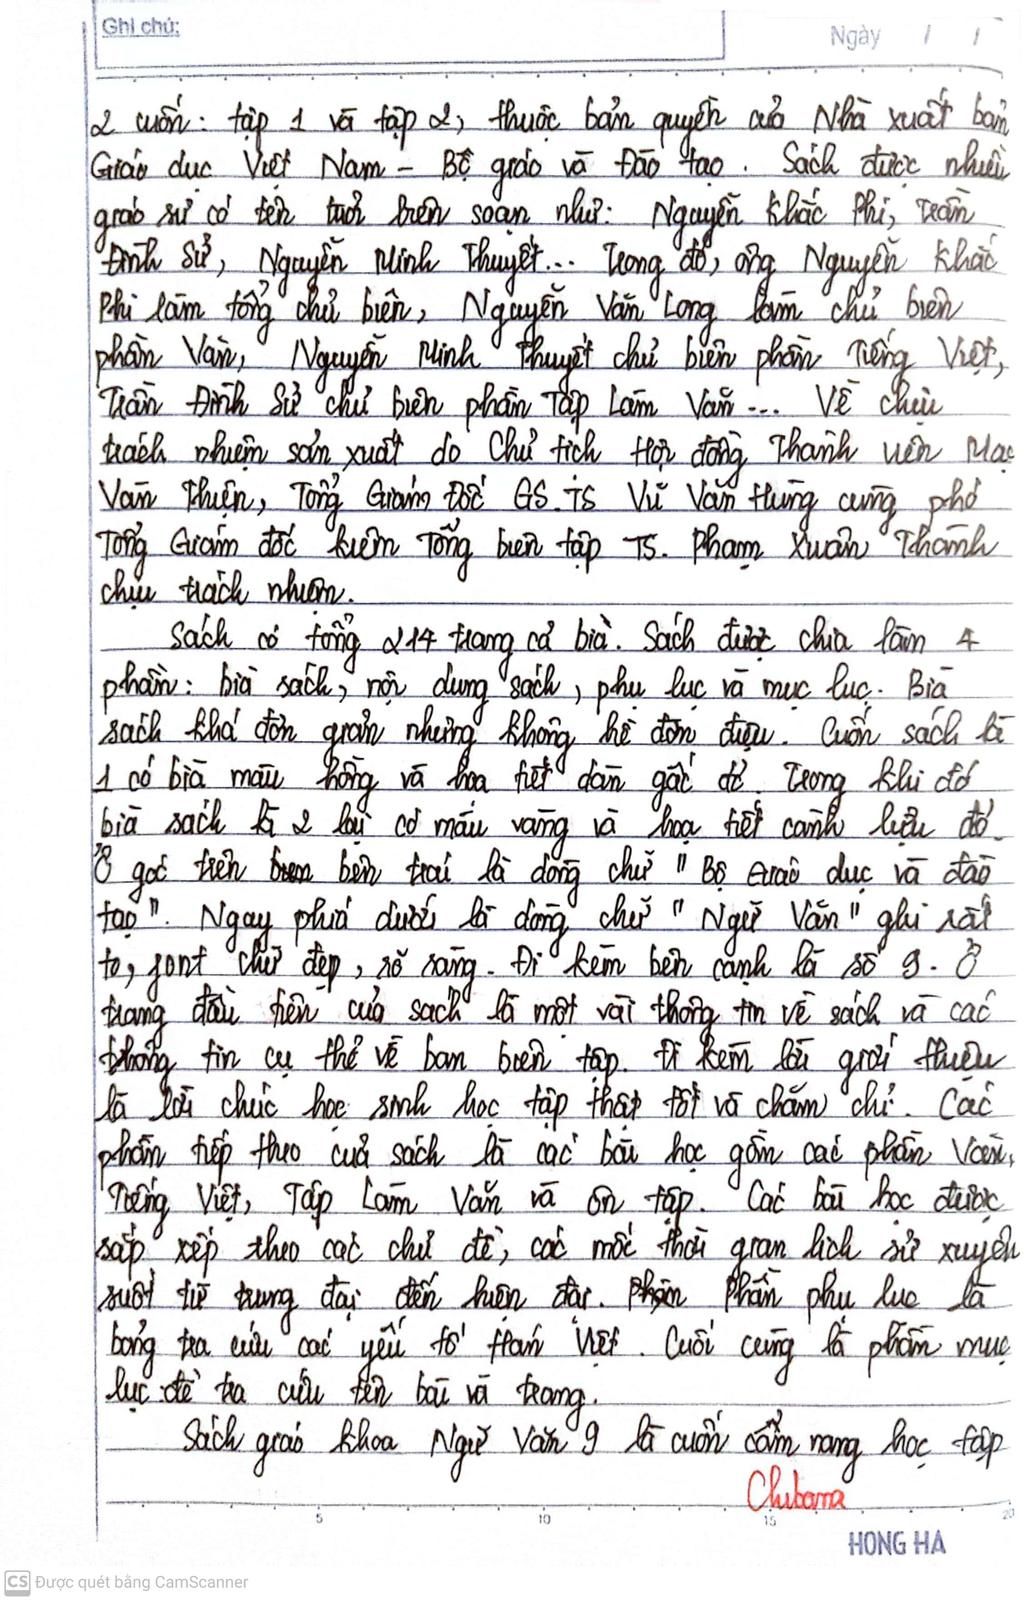 Ghi chú:
Ngày / /
2 cuốn: tập 1 và tập 2, thuộc bản quyền củả Nhà xuất bản
Giáo dục Việt Nam – Bộ giáo và Đào tạo. Sách được nhiều
giáo sư có tên tuổi biên soạn như: Nguyễn Khắc Phi, Trần
Đình Sử, Nguyễn Minh Thuyết... Trong đó, ông Nguyễn Khắc
Phi làm tổng chủ biên, Nguyễn Văn Long làm chủ biên
phần Văn, Nguyễn Minh Thuyết chủ biên phần Tiếng Việt,
Trần Đình Sử chủ biên phần Tập Làm Văn... Về chịu
trách nhiệm sản xuất do Chủ tịch Hội đồng Thành viên Mạc
Văn Thiện, Tổng Giám Đốc GS.TS Vũ Văn Hùng cùng phó
Tổng Giám đốc kiêm Tổng biên tập TS. Phạm Xuân Thành
chịu trách nhiệm.
Sách có tổng 214 trang cả bìa. Sách được chia làm 4
phần: bìa sách, nội dung sách, phụ lục và mục lục. Bìa
sách khá đơn giản nhưng không hề đơn điệu. Cuốn sách là
1 có bìa màu hồng và hoa tiết dàn gấc đỏ. Trong khi đó
bìa sách là 2 lại có màu vàng và họa tiết cành lựu đỏ.
Ở góc trên bên trái là dòng chữ "Bộ Giáo dục và đào
tạo". Ngay phía dưới là dòng chữ "Ngữ Văn" ghi rất
to, font chữ đẹp, rõ ràng. Đi kèm bên cạnh là số 9. Ở
trang đầu tiên của sách là một vài thông tin về sách và các
thông tin cụ thể về ban biên tập. Đi kèm lời giới thiệu
là lời chúc học sinh học tập thật tốt và chăm chỉ. Các
phần tiếp theo của sách là các bài học gồm các phần Văn,
Tiếng Việt, Tập Làm Văn và ôn tập. Các bài học được
sắp xếp theo các chủ đề, các mốc thời gian lịch sử xuyên
suốt từ trung đại đến hiện đại. Phần phụ lục là
bảng tra cứu các yếu tố Hán Việt. Cuối cùng là phần mục
lục để tra cứu tên bài và trang.
Sách giáo khoa Ngữ Văn 9 là cuốn cẩm nang học tập
Chibana
5 10 15 20
HONG HA
CS Được quét bằng CamScanner